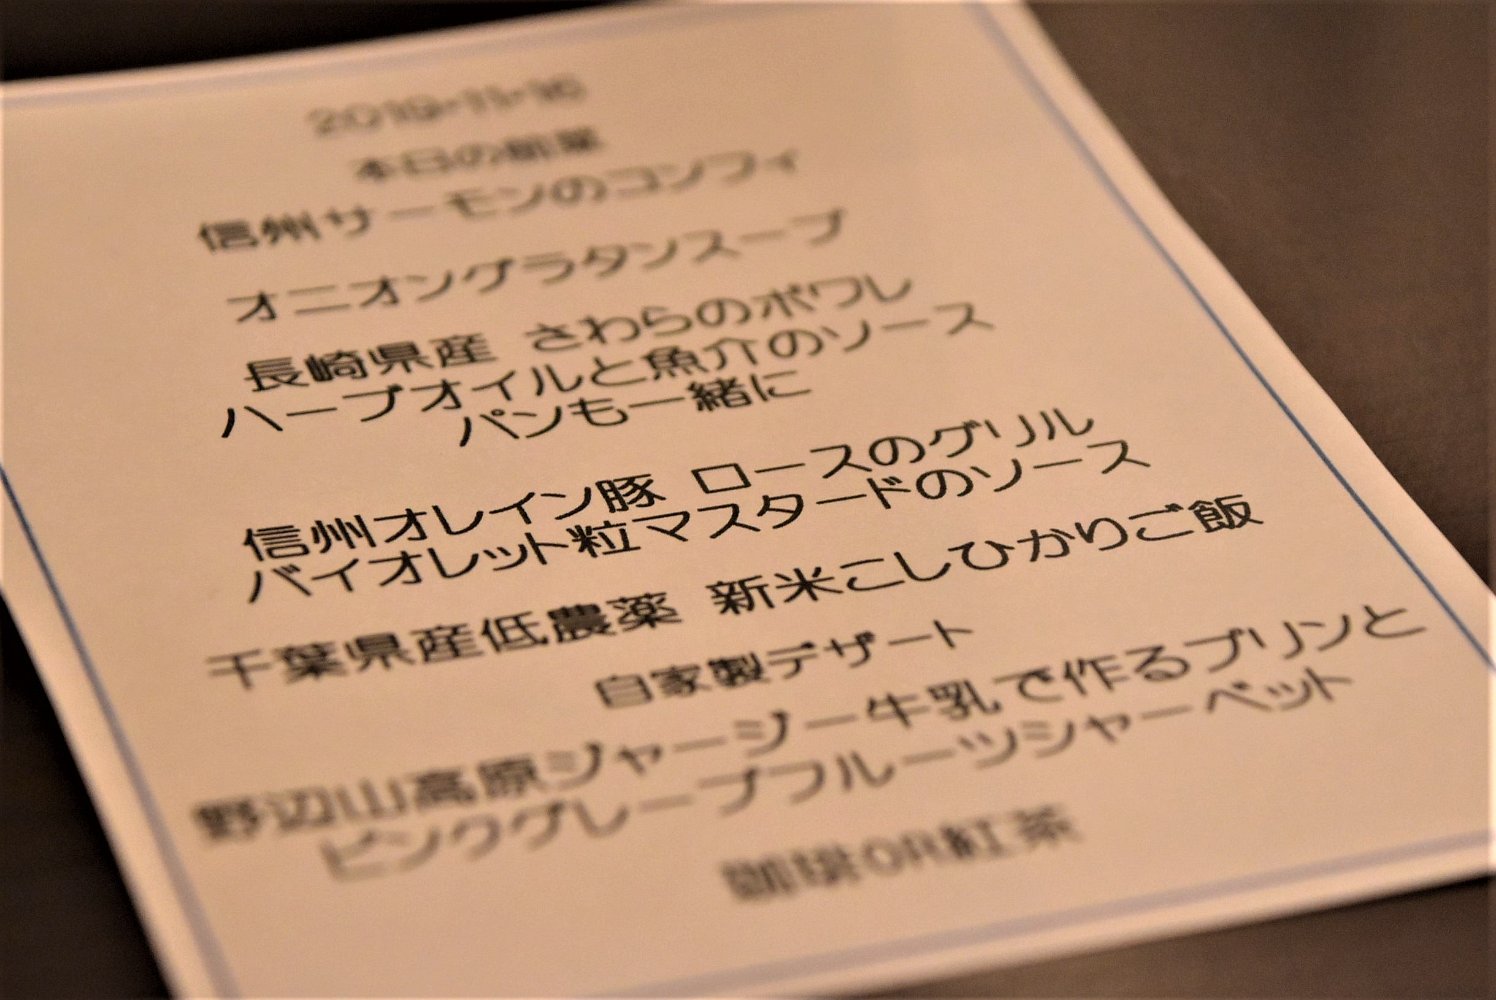 2019・11・16
本日の前菜
信州サーモンのコンフィ
オニオングラタンスープ
長崎県産 さわらのポワレ
ハーブオイルと魚介のソース
パンも一緒に
信州オレイン豚 ロースのグリル
バイオレット粒マスタードのソース
千葉県産低農薬 新米こしひかりご飯
自家製デザート
野辺山高原ジャージー牛乳で作るプリンと
ピンクグレープフルーツシャーベット
珈琲OR紅茶